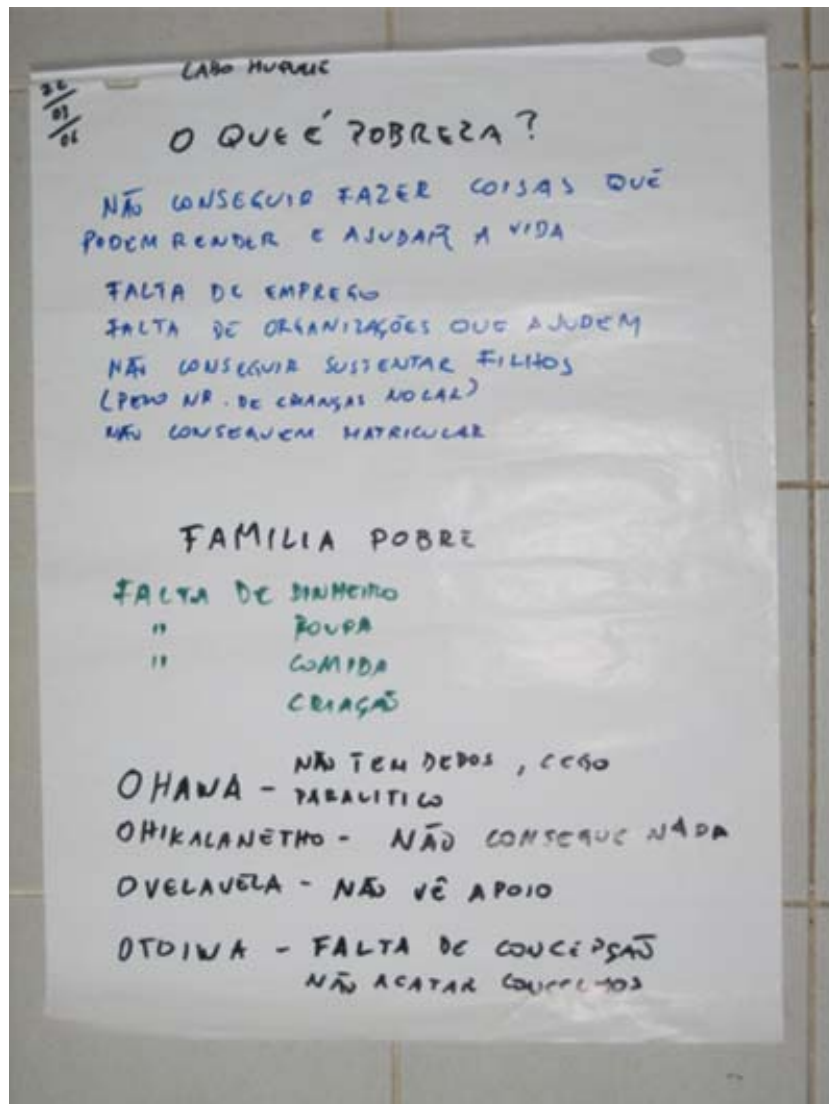 CABO
22/03/06
O QUE É POBREZA?
NÃO CONSEGUIR FAZER COISAS QUE
PODEM RENDER E AJUDAR A VIDA
FALTA DE EMPREGO
FALTA DE ORGANIZAÇÕES QUE AJUDEM
NÃO CONSEGUIR SUSTENTAR FILHOS
(PELO NR. DE CRIANÇAS NO LAR)
NÃO CONSEGUEM MATRICULAR
FAMILIA POBRE
FALTA DE DINHEIRO
" ROUPA
" COMIDA
CRIAÇÃO
NÃO TEM DEDOS, CEGO
OHAWA - PARALITICO
OHIKALANETHO - NÃO CONSEGUE NADA
OVELAVELA - NÃO VÊ APOIO
OTDIWA - FALTA DE CONCEPSÃO
NÃO ACATAR